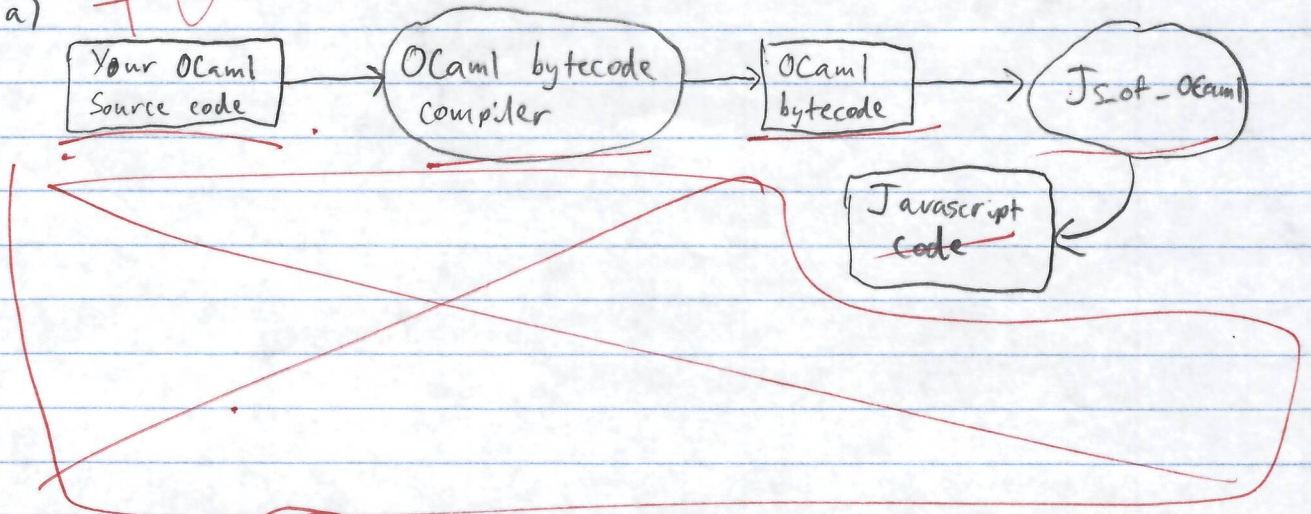 a)
Your OCaml
Source code
OCaml bytecode
compiler
OCaml
bytecode
Js_of_OCaml
Javascript
code